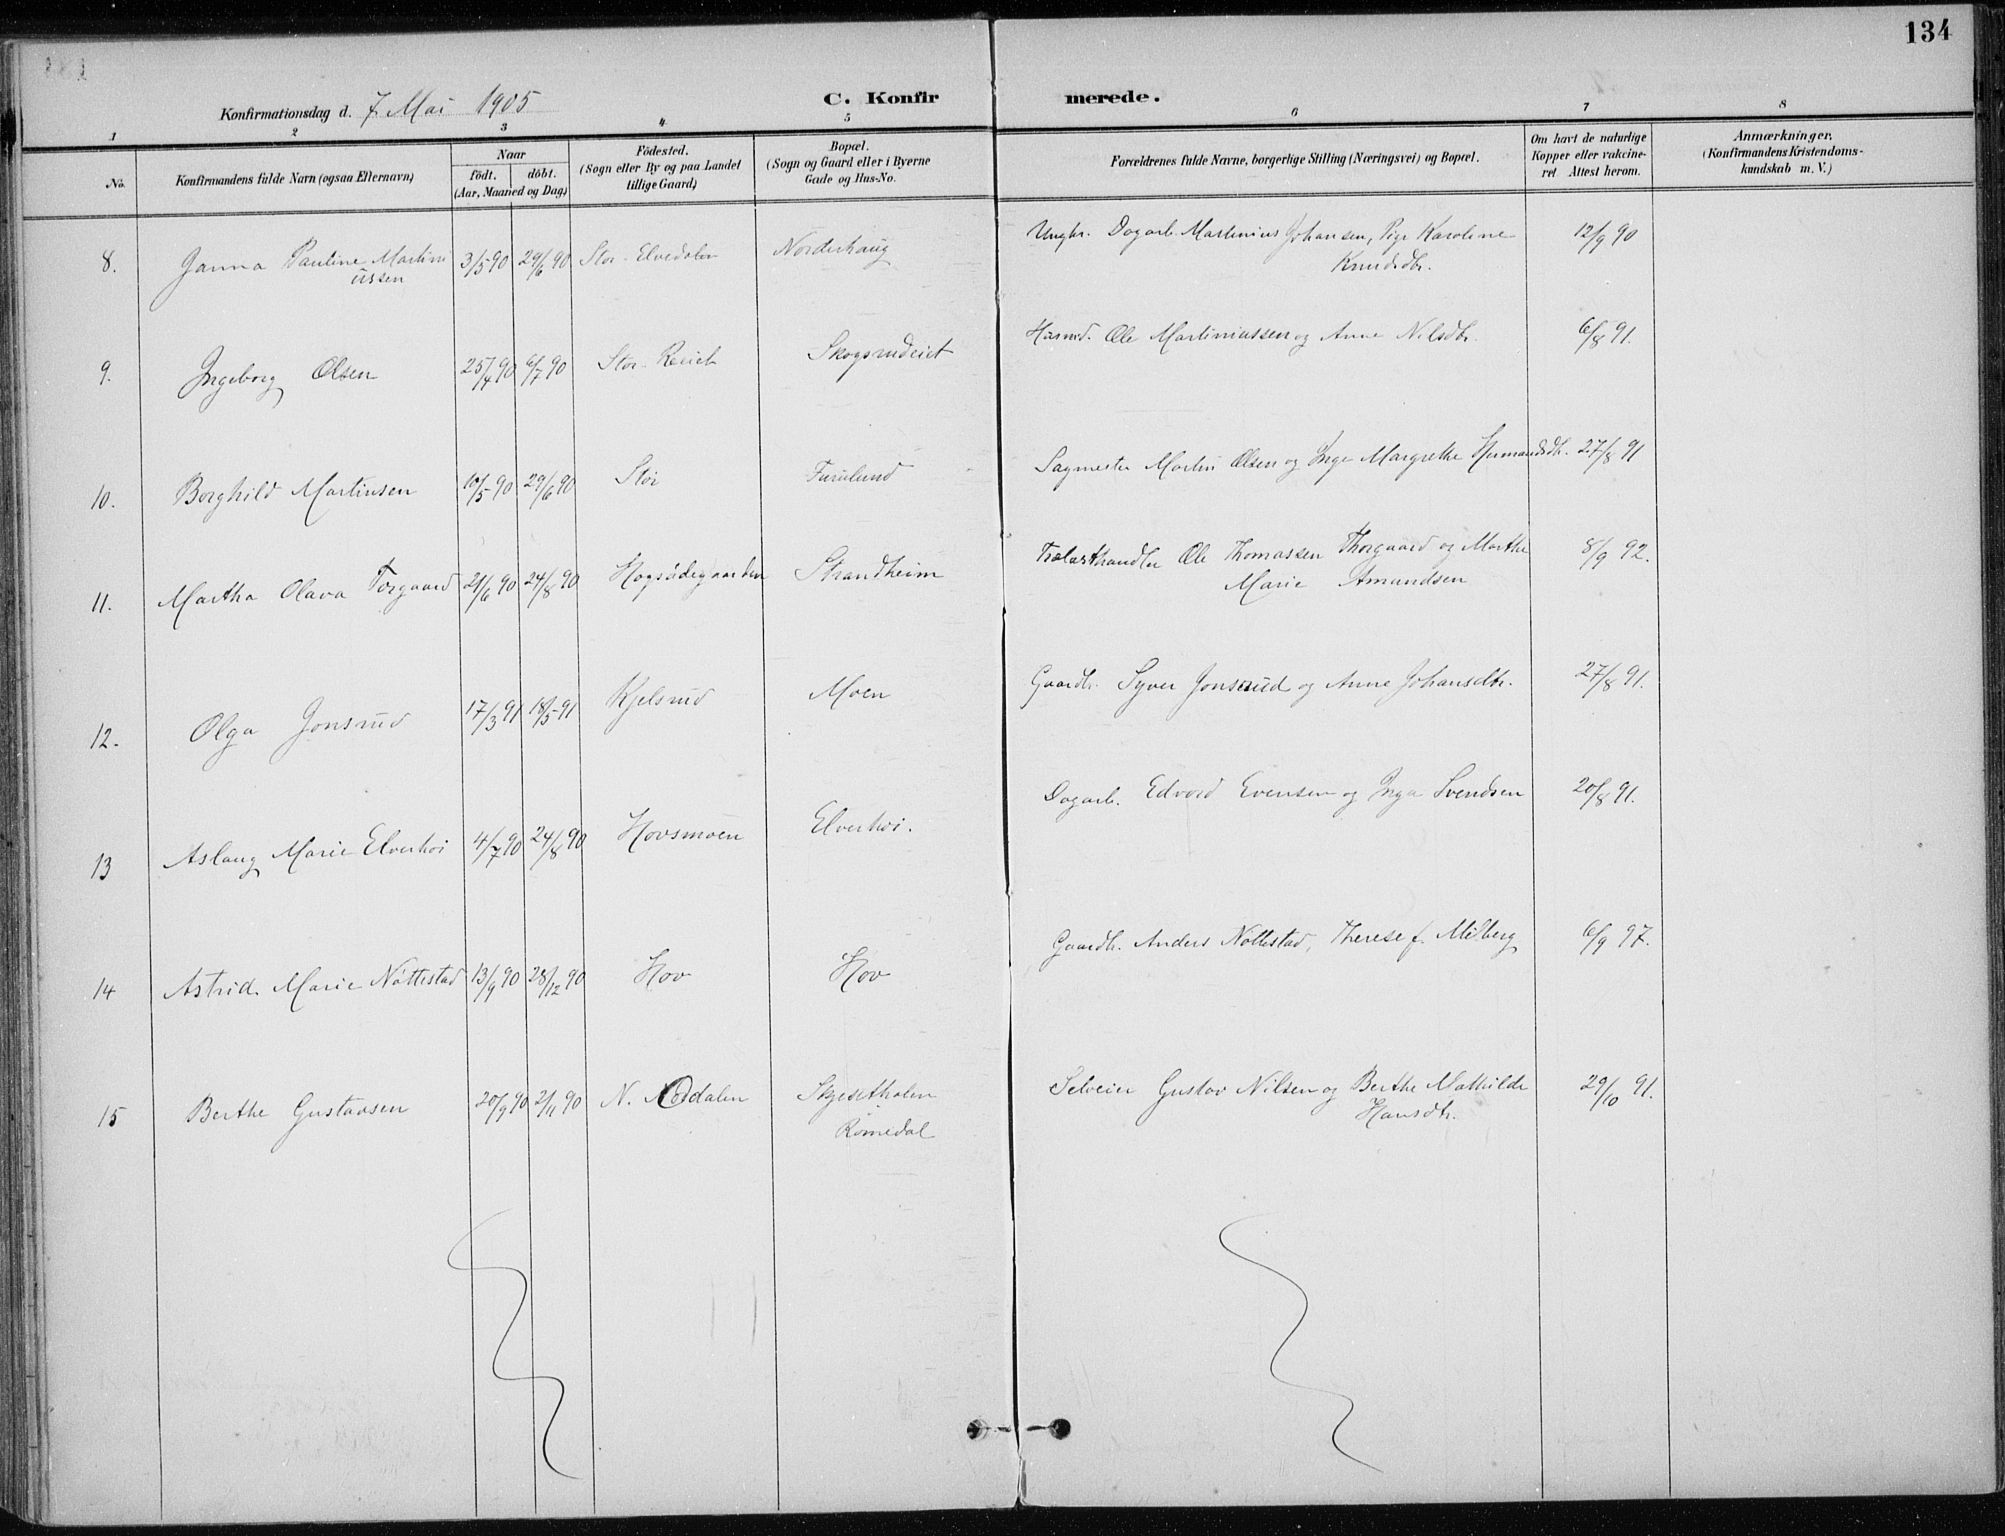 134
Konfirmationsdag d. 7 Mai 1905
C. Konfirmerede.
1 2 3 4 5 6 7 8
No.
Konfirmandens fulde Navn (ogsaa Efternavn)
Naar
födt. döbt.
(Aar, Maaned og Dag)
Födested.
(Sogn eller By og paa Landet
tillige Gaard)
Bopæl.
(Sogn og Gaard eller i Byerne
Gade og Hus-No.
Forældrenes fulde Navne, borgerlige Stilling (Næringsvei) og Bopæl.
Om havt de naturlige
Kopper eller vakcine-
ret Attest herom.
Anmærkninger.
(Konfirmandens Kristendoms-
kundskab m. V.)
8. Janna Pauline Martini 3/5 90 29/6 90 Stor-Elvedalen Norderhaug Ungkr. Dagarb. Martinius Johansen, Pige Karoline 12/9 90
ussen Knudsdtr.
9. Ingeborg Olsen 25/4 90 6/7 90 Stor Skogsrudeiet Husmd. Ole Martiniussen og Anne Nilsdtr. 6/8 91.
10. Borghild Martinsen 10/5 90 29/6 90 Stor Furulund Sagmester Martin Olsen og Inge Margrethe Hermandsdtr. 27/8 91
11. Martha Olava Torgaard 21/6 90 24/8 90 Strandheim Trælasthandler Ole Thomassen Thorgaard og Marthe 8/9 92.
Marie Amundsen
12. Olga Jonsrud 17/3 91 18/5 91 Kjelsrud Moen Gaardbr. Syver Jonsrud og Anne Johansdtr. 27/8 91.
13 Aslaug Marie Elverhoi 4/7 90 24/8 90 Hovsmoen Elverhoi. Dagarb. Edvard Evensen og Inga Svendsen 20/8 91.
14 Astrid Marie Nöttestad 13/9 90 28/12 90 Hov Hov Gaardbr. Anders Nöttestad, Therese f. Milberg 6/9 97.
15 Berthe Gustavsen 20/9 90 2/11 90 N. Odalen Skjesetholen Selveier Gustav Nilsen og Berthe Mathilde 29/10 91.
Romedal Hansdtr.